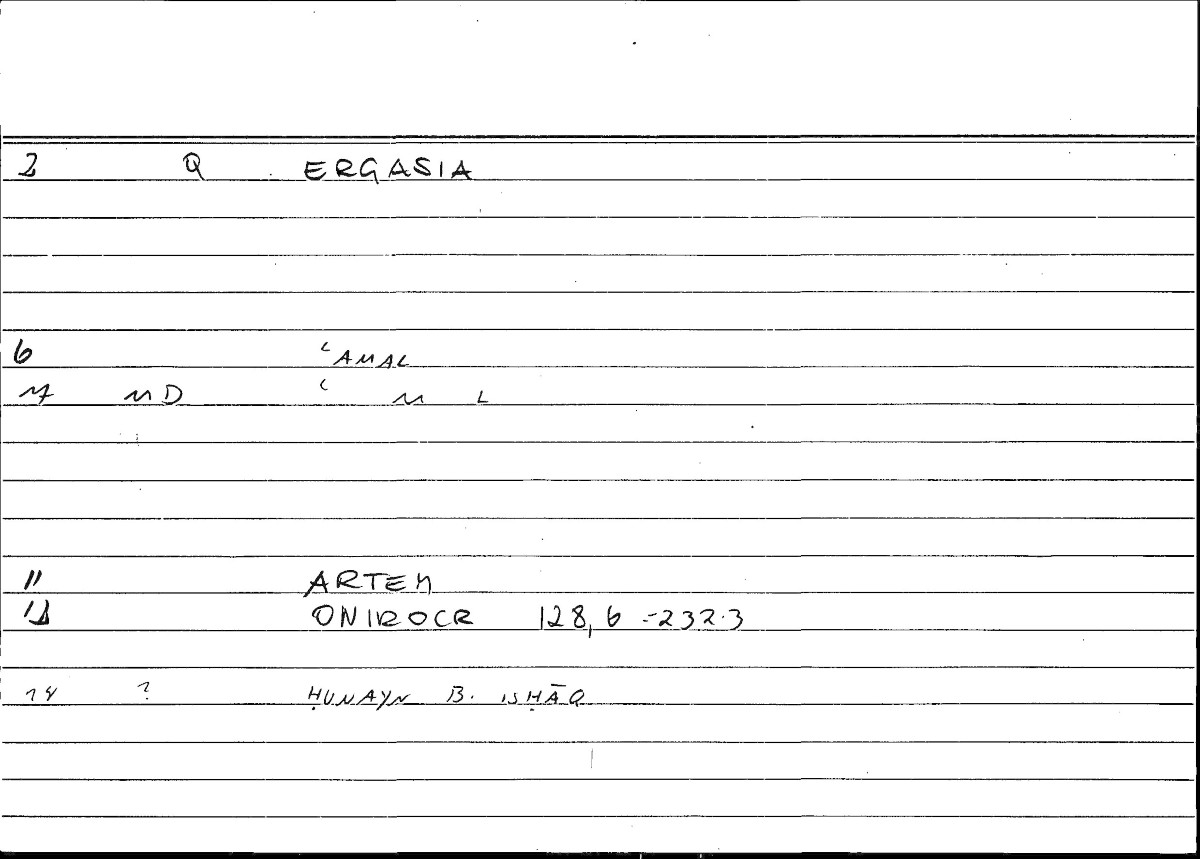 2 Q ERGASIA
6 ʿAMAL
7 MD ʿ M L
11 ARTEM
12 ONIROCR 128,6 -232.3
14 ? ḤUNAYN B. ISḤĀQ